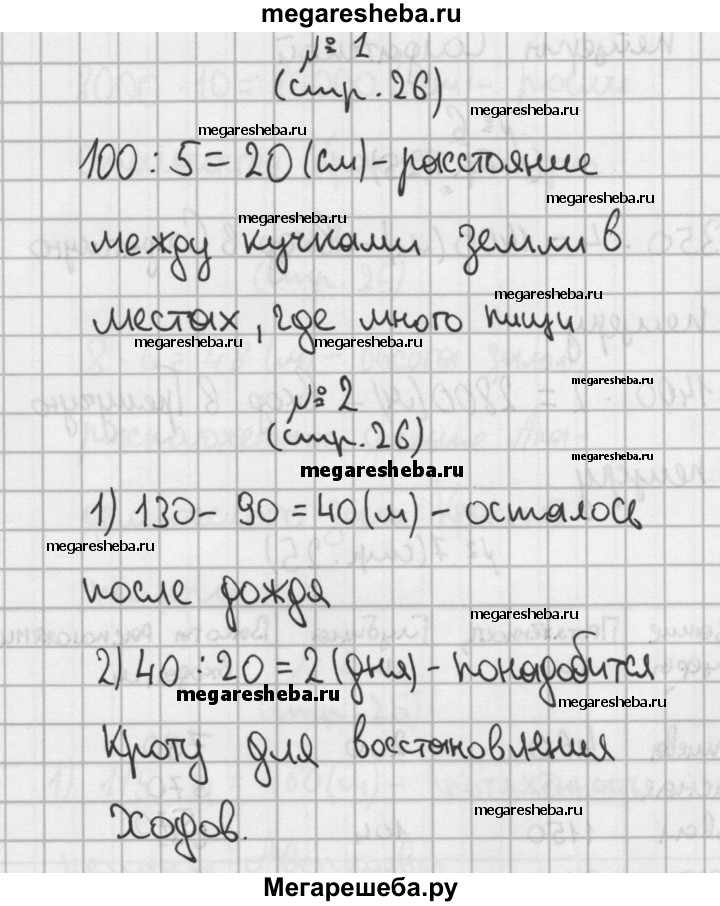 megaresheba.ru
№ 1
(стр. 26)
megaresheba.ru
megaresheba.ru
100 : 5 = 20 (см) - расстояние
megaresheba.ru
megaresheba.ru
между кучками земли в
megaresheba.ru
местах, где много пищи
megaresheba.ru
megaresheba.ru
megaresheba.ru
№ 2
(стр. 26)
megaresheba.ru
megaresheba.ru
1) 130 - 90 = 40 (м) - осталось
megaresheba.ru
после дождя
megaresheba.ru
2) 40 : 20 = 2 (дня) - понадобится
megaresheba.ru
megaresheba.ru
кроту для восстановления
ходов.
megaresheba.ru
Мегарешеба.ру